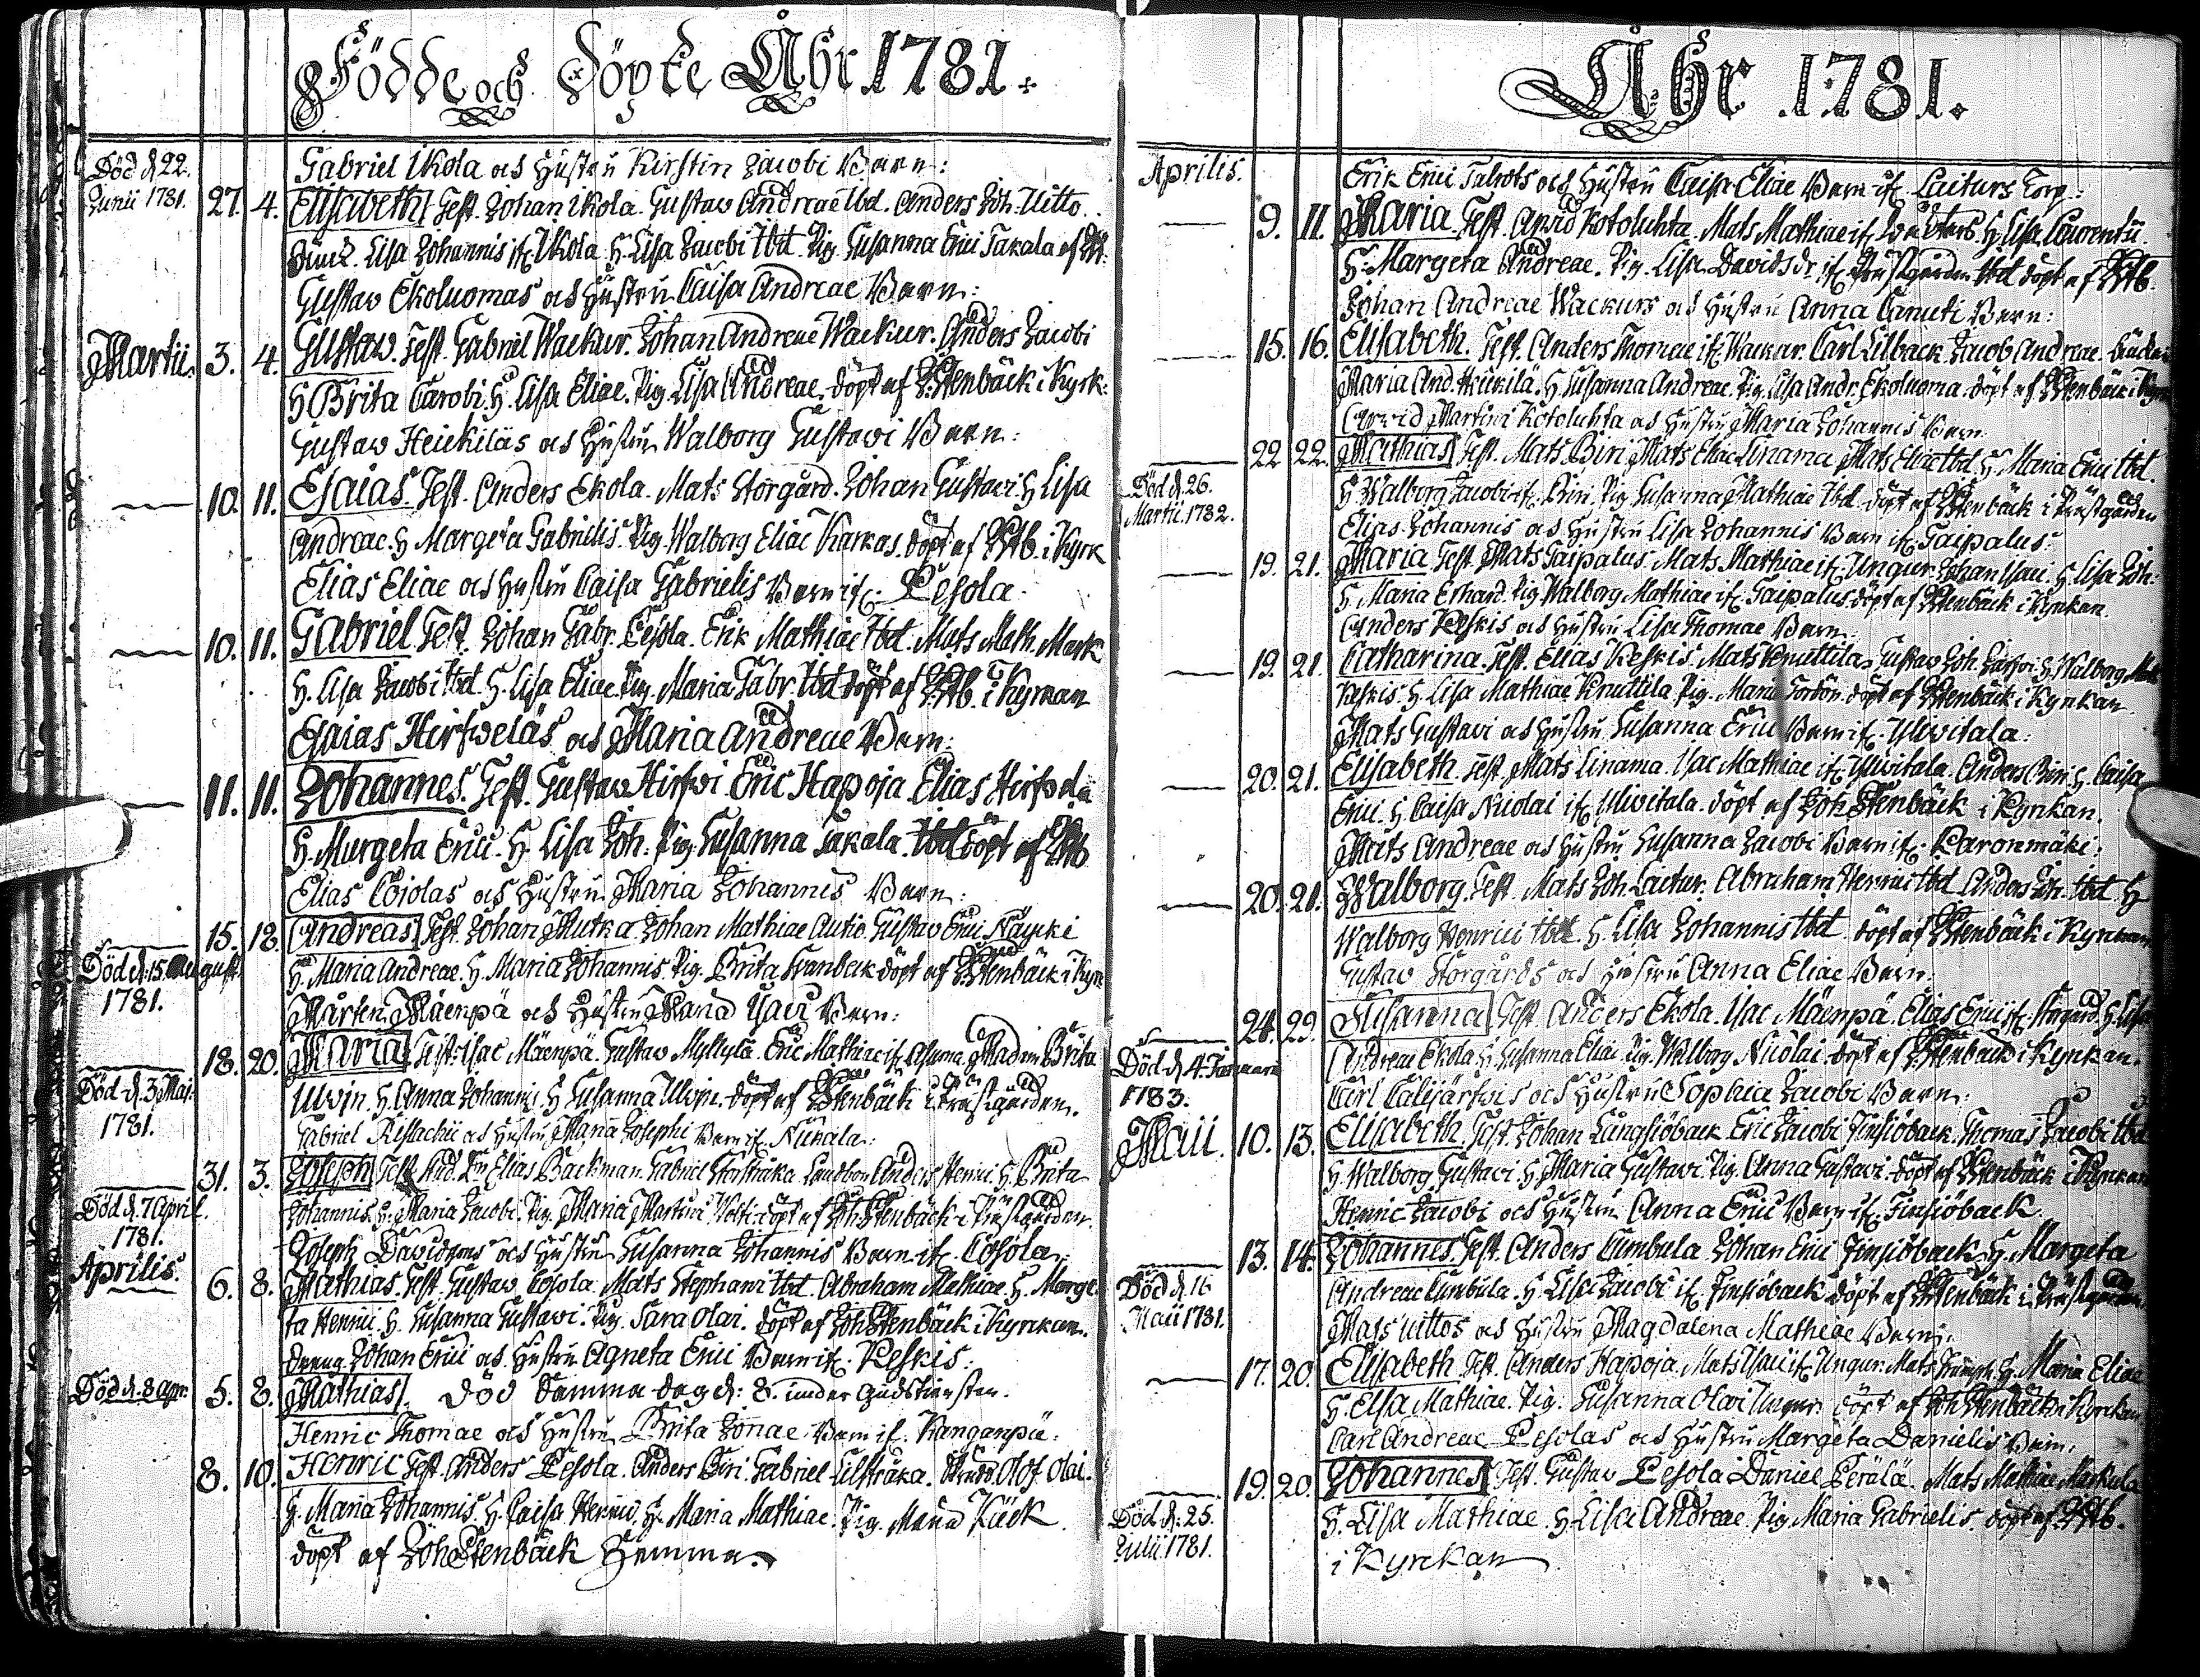 Födde och Döpte Åhr 1781.
Död d. 22. Junii 1781.
Gabriel Ikola och Hustru Kirstin Jacobi Barn:
27. 4. Elisabeth Test. Johan Ikola. Gustav Andreae Ibd. Anders Joh. Uitto.
Lisa Johannis if. Ikola. H. Lisa Jacobi Ibd. Pig. Susanna Erici Takala
Gustav Ekoluomas och Hustru Caisa Andreae Barn:
Martii. 3. 4. Gustav. Test. Gabriel Wackur. Johan Andreae Wackur. Anders Jacobi
H. Brita Jacobi. H. Lisa Eliae. Pig. Lisa Andreae. döpt af Stenbäck i Kyrk:
Gustav Heickiläs och Hustru Walborg Gustavi Barn:
10. 11. Esaias. Test. Anders Ekola. Mats Storgård. Johan Gustavi. H. Lisa
Andreae. H. Margeta Gabrielis. Pig. Walborg Eliae Karkas. döpt af Stb. i Kyrk
Elias Eliae och Hustru Caisa Gabrielis Barn if. Pesola.
10. 11. Gabriel Test. Johan Gabr. Pesola. Erik Mathiae Ibd. Mats Math. Mark
H. Lisa Jacobi Ibd. H. Lisa Eliae. Pig. Maria Gabr. Ibd döpt af Stb. i Kyrkan
Esaias Hirfweläs och Maria Andreae Barn:
11. 11. Johannes. Test. Gustav Hirfwi Eric Hapoja Elias Hirfwelä
H. Margeta Erici. H. Lisa Joh. Pig. Susanna Takala. Ibd döpt af Stb
Elias Coiolas och Hustru Maria Johannis Barn:
15. 18. Andreas Test. Johan Mutka. Johan Mathiae Autio. Gustav Erici Näycki
Död d. 15. August 1781.
H. Maria Andreae. H. Maria Johannis. Pig. Brita Svanbeck döpt af Stenbäck i Kyrk
Mårten Mäenpä och Hustru Maria Isaci Barn:
18. 20. Maria Test. Isac Mäenpä. Gustav Myllylä. Eric Mathiae if. Asuma. Madm Brita
Död d. 3 Maji 1781.
Ulvin. H. Anna Johannis. H. Susanna Ulvin. döpt af Stenbäck i Prästgården.
Gabriel Eustachii och Hustru Maria Josephi Barn if. Nickala:
31. 3. Joseph Test. Elias Backman. Gabriel Storstråka. Landbon Anders Henrici. H. Brita
Död d. 7 April. 1781.
Johannis. H. Maria Jacobi. Pig. Maria Martini döpt af Joh Stenbäck i Prästgården.
Joseph Davidsons och Hustru Susanna Johannis Barn if. Cojola:
Aprilis. 6. 8. Mathias. Test. Gustav Cojola. Mats Stephani Ibd. Abraham Mathiae. H. Marge
ta Henrici. H. Susanna Gustavi. Pig. Sara Olai. döpt af Joh Stenbäck i Kyrckan.
Dreng. Johan Erici och Hustru Agneta Erici Barn if. Keskis:
Död d. 8 Apr. 5. 8. Mathias. Död Samma dag d: 8. under Gudstiensten.
Henric Thomae och Hustru Brita Jonae Barn if. Kanganpä:
8. 10. Henric Test. Anders Pesola. Anders Biri. Gabriel Lillstråka. Olof Olai.
H. Maria Johannis. H. Caisa Henrici. H. Maria Mathiae. Pig. Maria Käck.
döpt af Joh Stenbäck Hemma.
Åhr 1781.
Aprilis.
Erik Erici Talvots och Hustru Caisa Eliae Barn if. Laiturs Torp:
9. 11. Maria. Test. Arvid Kotoluhta. Mats Mathiae if. H. Lisa Laurentii.
H. Margeta Andreae. Pig. Lisa Davids dr. if. Prästgården Ibd döpt af Stb.
Johan Andreae Wackurs och Hustru Anna Canuti Barn:
15. 16. Elisabeth. Test. Anders Thomae if. Wackur. Carl Lilback. Jacob Andreae.
Maria And. Heickilä. H. Susanna Andreae. Pig. Lisa Andr. Ekoluoma. döpt af Stenbäck i Kyrk
Arvid Martini Kotoluhta och Hustru Maria Johannis Barn
22 22. Mathias Test. Mats Biri Mats Eliae Linama Mats Eliae Ibd. H. Maria Erici Ibd.
Död d. 26. Martii. 1782.
H. Walborg Jacobi if. Biri. Pig. Susanna Mathiae Ibd. döpt af Stenbäck i Prästgården
Elias Johannis och Hustru Lisa Johannis Barn if. Taipalus:
19. 21. Maria Test. Mats Taipalus. Mats Mathiae if. Ungur. Johan Isaci. H. Lisa Joh:
H. Maria Erhard. Pig. Walborg Mathiae if. Taipalus döpt af Stenbäck i Kyrkan.
Anders Keskis och Hustru Lisa Thomae Barn:
19. 21. Catharina. Test. Elias Keskis. Mats Knuttila. Gustav Joh. H. Walborg
Keskis. H. Lisa Mathiae Knuttila. Pig. Maria döpt af Stenbäck i Kyrkan
Mats Gustavi och Hustru Susanna Erici Barn if. Ylivitala:
20. 21. Elisabeth. Test. Mats Linama. Isac Mathiae if. Ylivitala. Anders Biri. H. Caisa
Erici. H. Caisa Nicolai if. Ylivitala. döpt af Joh Stenbäck i Kyrkan.
Mats Andreae och Hustru Susanna Jacobi Barn if. Karonmäki:
20. 21. Walborg. Test. Mats Joh. Laitur. Abraham Henrici Ibd Anders Joh. Ibd H
Walborg Henrici Ibd. H. Lisa Johannis Ibd. döpt af Stenbäck i Kyrkan
Gustav Storgårds och Hustru Anna Eliae Barn:
24. 29. Susanna Test. Anders Ekola. Isac Mäenpä. Elias Erici if. Storgård. H. Lisa
Död d. 4. Januarii 1783.
Andreae Ekola H. Susanna Eliae. Pig. Walborg Nicolai. döpt af Stenbäck i Kyrckan.
Carl Calijärfwis och Hustru Sophia Jacobi Barn:
Maii. 10. 13. Elisabeth. Test. Johan Lungsiöback. Eric Jacobi Finsiöback. Thomas Jacobi Ibd
H. Walborg Gustavi. H. Maria Gustavi. Pig. Anna Gustavi. döpt af Stenbäck i Kyrckan
Henric Jacobi och Hustru Anna Erici Barn if. Finsiöback.
13. 14. Johannes. Test. Anders Cumbula Johan Erici Finsiöback H. Margeta
Död d. 16 Maii 1781.
Andreae Cumbula. H. Lisa Jacobi if. Finsiöback döpt af Stenbäck i Prästgården
Mats Uittos och Hustru Magdalena Mathiae Barn:
17. 20. Elisabeth. Test. Anders Hapoja. Mats Isaci if. Ungur. Mats H. Maria Eliae
H. Elsa Mathiae. Pig. Susanna Olai Ungur. döpt af Joh Stenbäck i Kyrckan
Carl Andreae Pesolas och Hustru Margeta Danielis Barn:
19. 20. Johannes Test. Gustav Pesola Daniel Perälä. Mats Mathiae Markula
Död d. 25. Julii 1781.
H. Lisa Mathiae. H. Lisa Andreae. Pig. Maria Gabrielis. döpt af Stb.
i Kyrckan